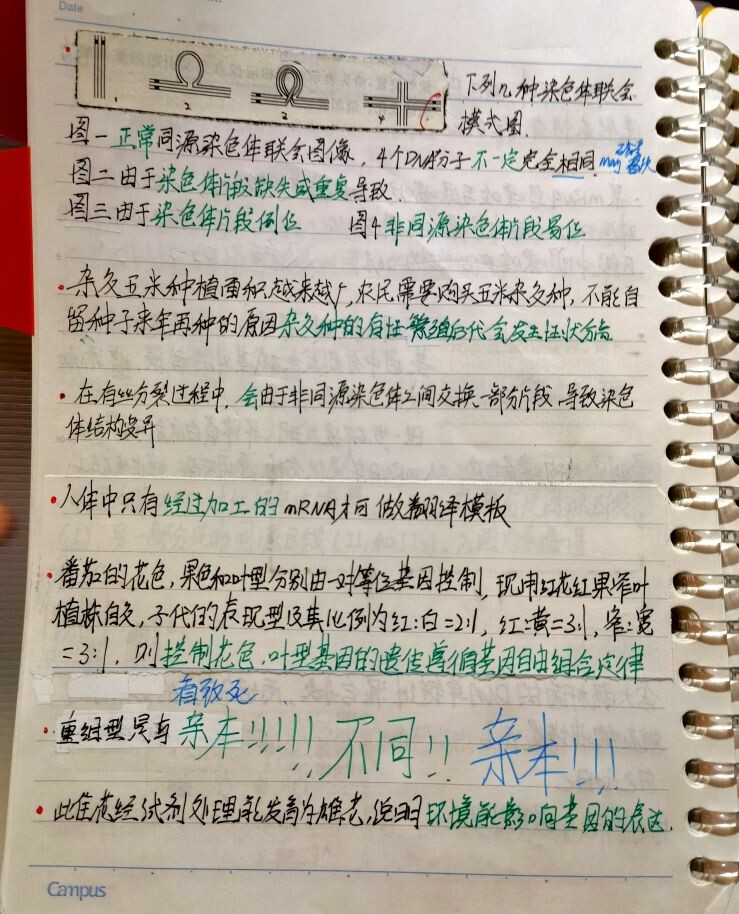 Date
1 2 3 4
下列几种染色体联会
模式图.
图一正常同源染色体联会图像, 4个DNA分子不一定完全相同.
图二由于染色体片段缺失或重复导致.
图三由于染色体片段倒位 图4非同源染色体片段易位
·杂交玉米种植面积越来越广,农民需要购买玉米杂交种,不能自
留种子来年再种的原因杂交种的自性繁殖后代会发生性状分离
·在有丝分裂过程中,会由于非同源染色体之间交换一部分片段,导致染色
体结构变异
·人体中只有经过加工的mRNA才可做翻译模板
·番茄的花色,果色和叶型分别由一对等位基因控制,现用红花红果窄叶
植株自交,子代的表现型及其比例为红:白=2:1,红:黄=3:1,窄:宽
=3:1,则控制花色、叶型基因的遗传遵循基因自由组合定律
有致死
·重组型是与亲本!!!!!不同!!亲本!!!
·此雌花经试剂处理能发育为雄花,说明环境能影响基因的表达.
Campus